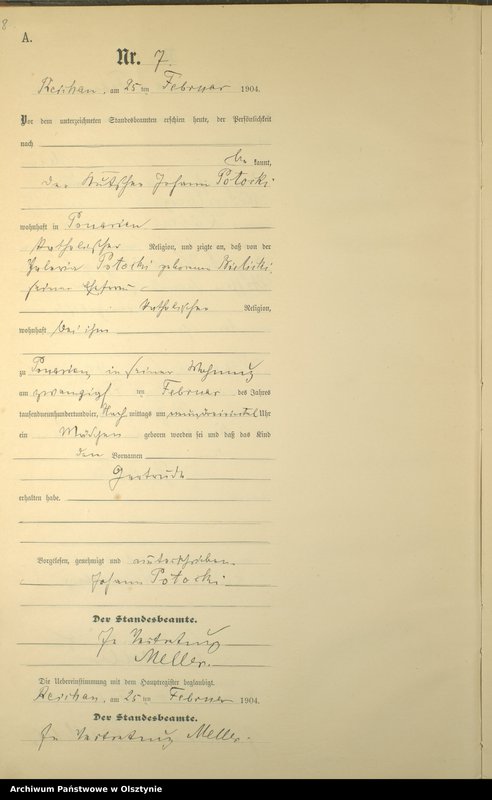 8
A.
Nr. 7.
Reichau, am 25 ten Februar 1904.
Vor dem unterzeichneten Standesbeamten erschien heute, der Persönlichkeit
nach
be kannt,
der Kutscher Johann Potocki
wohnhaft in Ponarien
katholischer Religion, und zeigte an, daß von der
Potocki geborenen
seiner Ehefrau
katholischer Religion,
wohnhaft bei ihm
zu Ponarien, in seiner Wohnung
am zwanzigsten Februar des Jahres
tausendneunhundertundvier, Nach mittags um Uhr
ein Mädchen geboren worden sei und daß das Kind
den Vornamen
Gertrude
erhalten habe.
Vorgelesen, genehmigt und unterschrieben.
Johann Potocki
Der Standesbeamte.
In Vertretung
Meller.
Die Uebereinstimmung mit dem Hauptregister beglaubigt.
Reichau, am 25 ten Februar 1904.
Der Standesbeamte.
In Vertretung Meller.
Archiwum Państwowe w Olsztynie